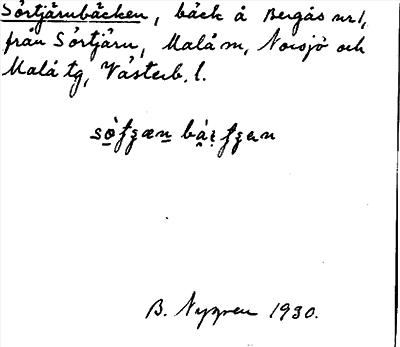 Sörtjärnbäcken, bäck å Bergås nr 1,
från Sörtjärn, Malå m, Norsjö och
Malå tg, Västerb. l.
B. Nygren 1930.